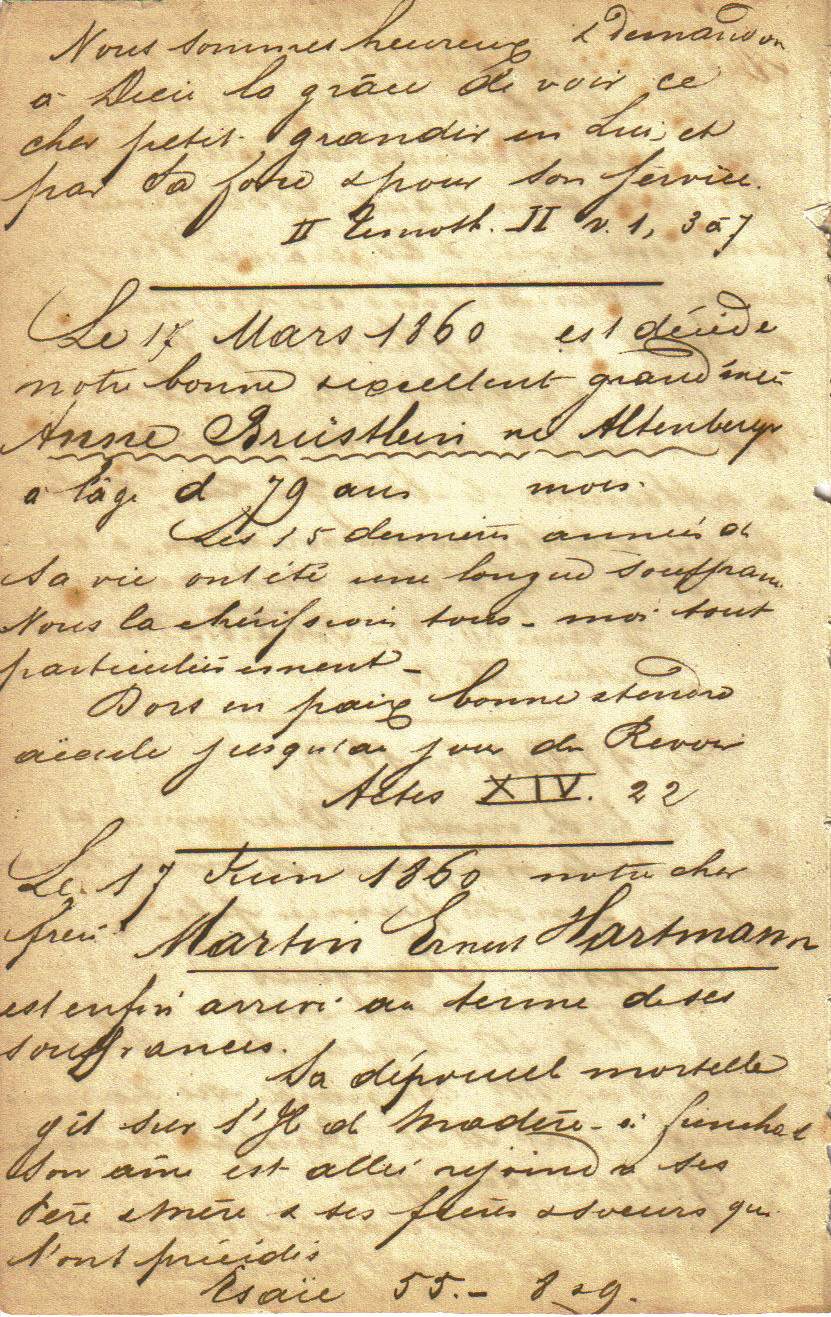 Nous sommes heureux & demandon
à Dieu la grâce de voir ce
cher petit grandir en Lui, et
par Sa force & pour son service.
II Timoth. II v. 1, 3 à 7
Le 17 Mars 1860 est décédé
notre bonne & excellent grand'mère
Anne Brüstlein né Altenburger
a l'âge d 79 ans mois.
Les 15 dernières années de
sa vie ont été une longue souffran
Nous la chérissions tous - moi tout
particulièrement -
Dors en paix bonne & tendre
aïeule jusqu'au jour du Revoir
Actes XIV. 22
Le 17 Juin 1860 notre cher
frère Martin Ernest Hartmann
est enfin arrivé au terme de ses
souffrances.
Sa dépouille mortelle
gît sur l'Il d Madère - à Funchal
Son âme est allée rejoindre ses
Père & Mère & ses frères & soeurs qui
l'ont précédés
Esaïe 55. - 8 & 9.